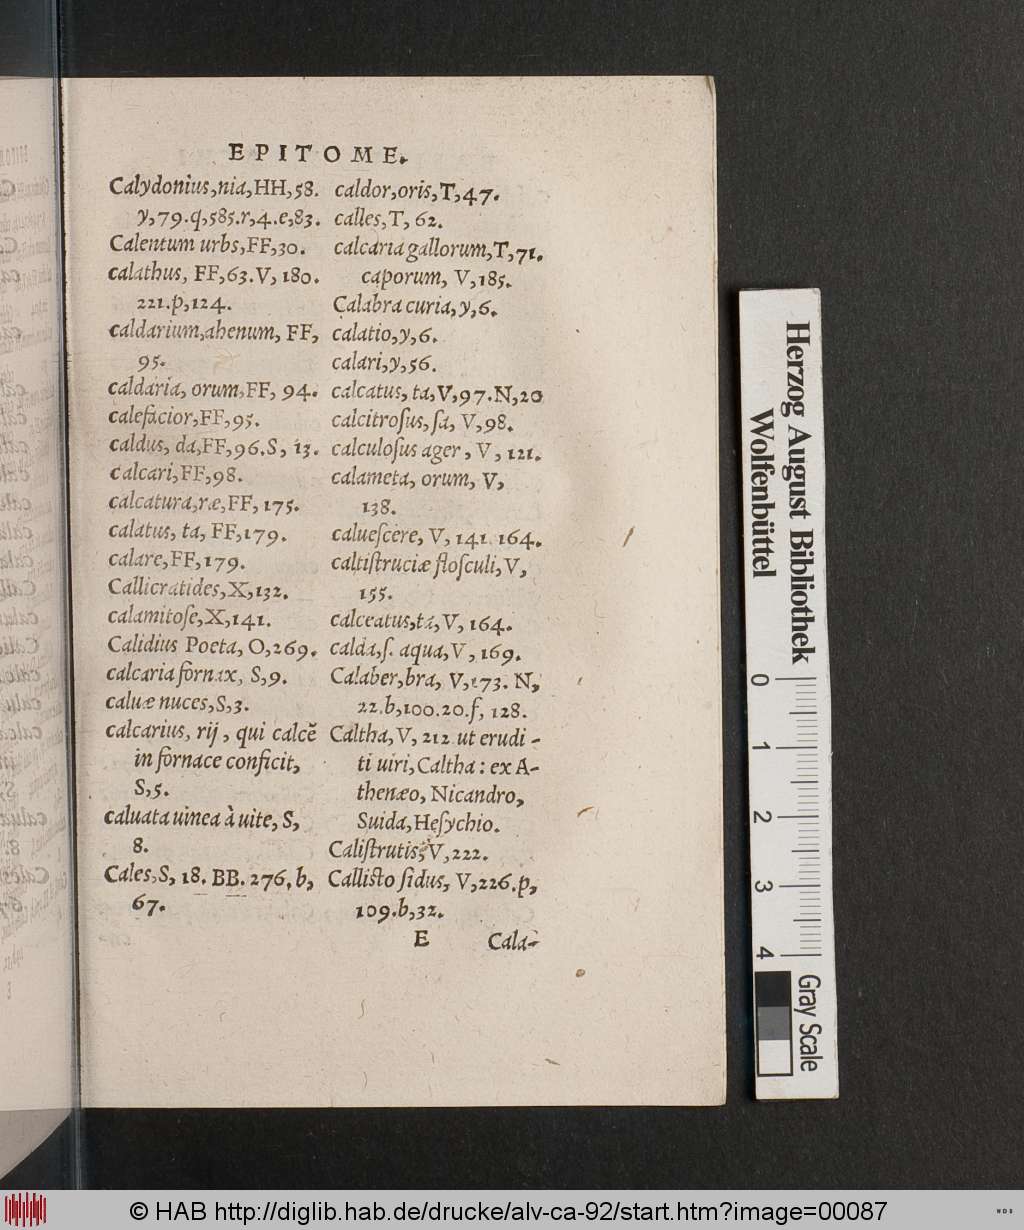 EPITOME.
Calydonius,nia,HH,58.
y,79.q,585.r,4.e,83.
Calentum urbs,FF,30.
calathus, FF,63.V, 180.
221.p,124.
caldarium,ahenum, FF,
95.
caldaria, orum,FF, 94.
calefacior,FF,95.
caldus, da,FF,96.S, 13.
calcari,FF,98.
calcatura,ræ,FF, 175.
calatus, ta, FF,179.
calare,FF,179.
Callicratides,X,132.
calamitoſe,X,141.
Calidius Poeta, O,269.
calcaria fornax, S,9.
caluæ nuces,S,3.
calcarius, rij, qui calcē
in fornace conficit,
S,5.
caluata uinea à uite, S,
8.
Cales,S, 18. BB. 276.b,
67.
caldor,oris,T,47.
calles,T, 62.
calcaria gallorum,T,71.
caporum, V,185.
Calabra curia,y,6.
calatio,y,6.
calari,y,56.
calcatus, ta,V,97.N,20
calcitroſus,ſa, V,98.
calculoſus ager, V, 121.
calameta, orum, V,
138.
calueſcere, V, 141. 164.
caltiſtruciæ floſculi,V,
155.
calceatus,ta,V, 164.
calda,ſ. aqua,V, 169.
Calaber,bra, V,173. N,
22.b,100.20.f, 128.
Caltha,V, 212 ut erudi-
ti uiri,Caltha: ex A-
thenæo, Nicandro,
Suida,Heſychio.
Caliſtrutis,V,222.
Calliſto ſidus, V,226.p,
109.b,32.
E Cala-
Herzog August Bibliothek
Wolfenbüttel
0 1 2 3 4
Gray Scale
© HAB http://diglib.hab.de/drucke/alv-ca-92/start.htm?image=00087